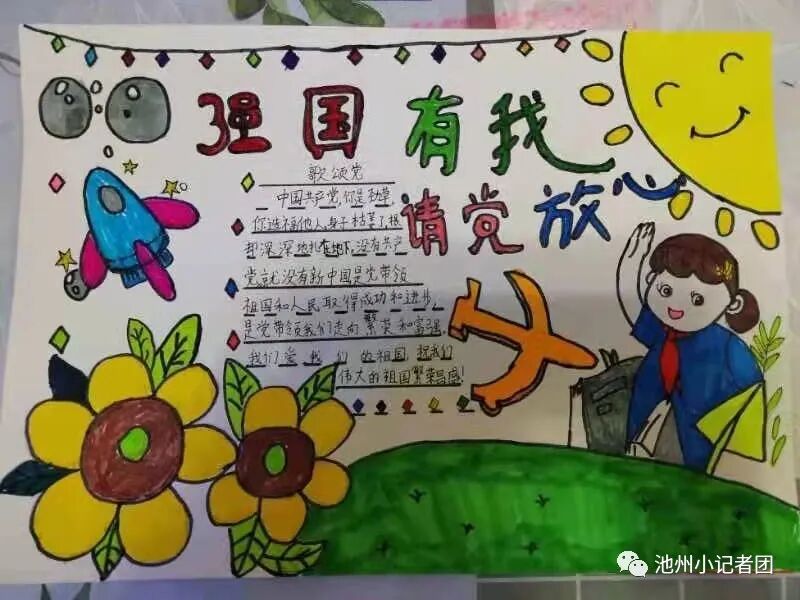 强国有我
请党放心
歌颂党
中国共产党,你是劲草,
你造福他人,身子枯萎了,根
却深深地扎在地下,没有共产
党就没有新中国是党带领
祖国和人民取得成功和进步,
是党带领我们走向繁荣和富强,
我们爱我们的祖国,祝我们
伟大的祖国繁荣昌盛!
池州小记者团